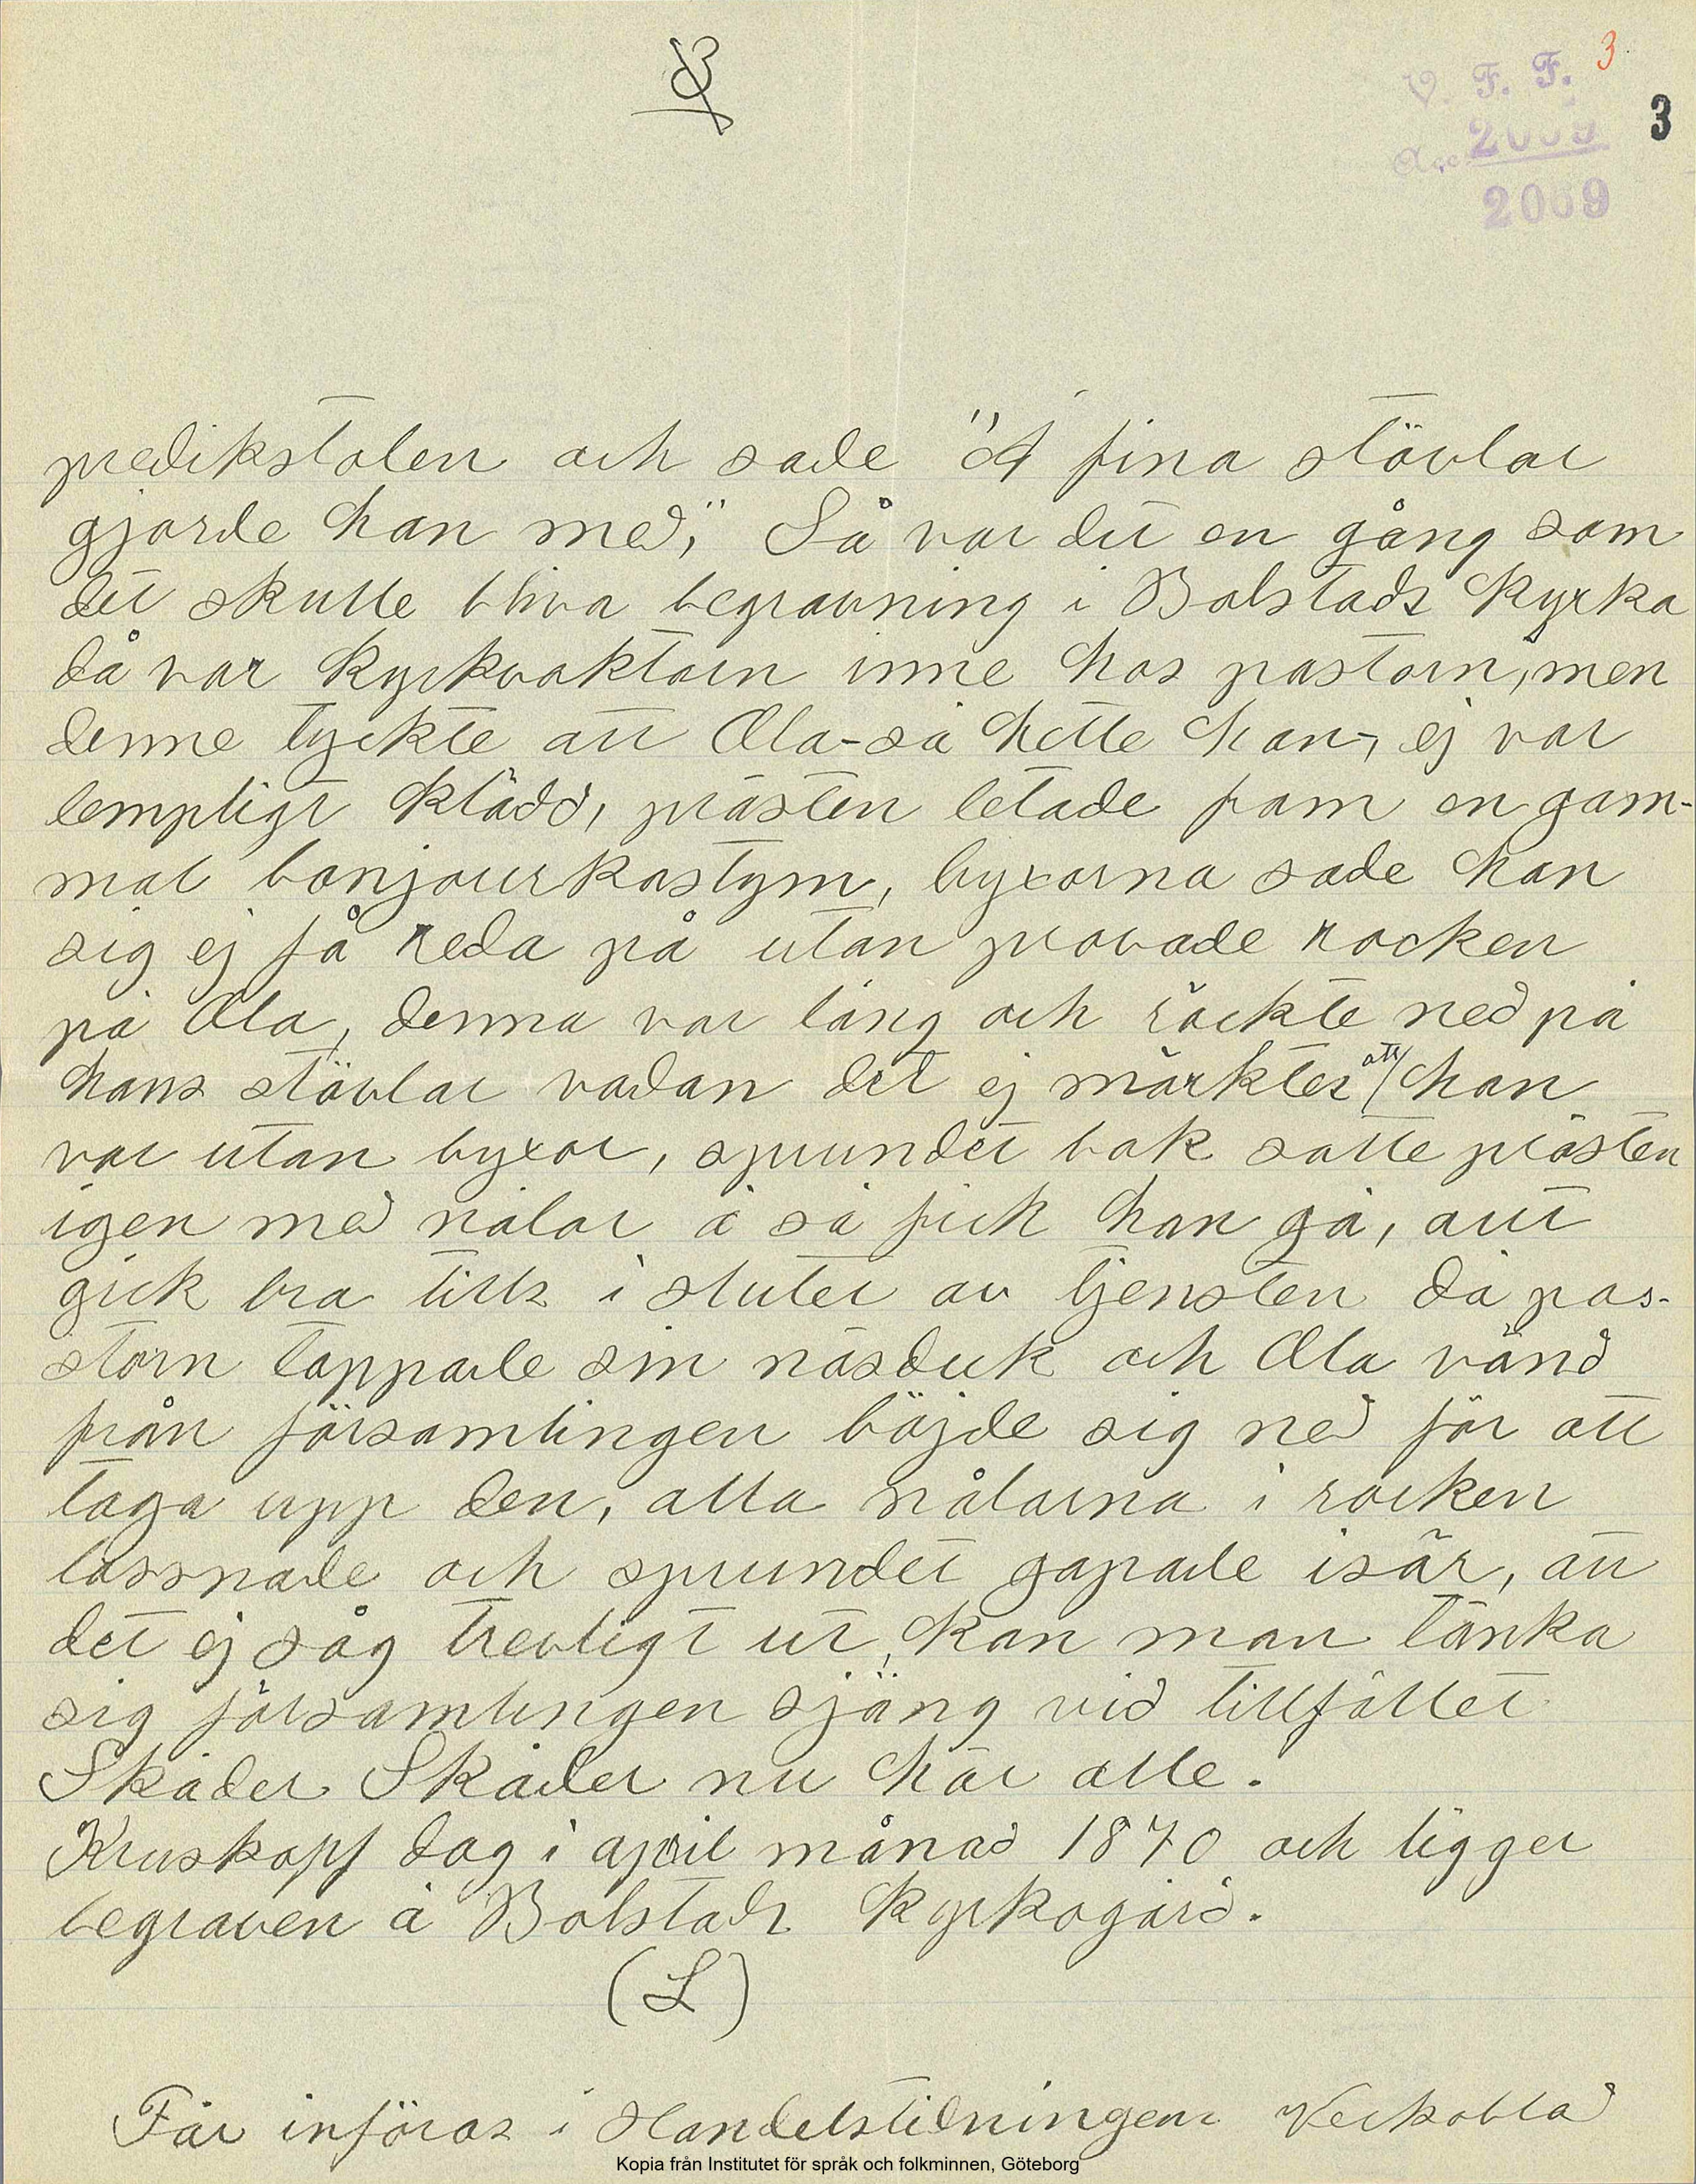 3
V. F. F. 3
3
Acc 2059
2069
predikstolen och sade "å fina stövlar
gjorde han med," Så var det en gång som
det skulle bliva begravning i Bolstads Kyrka
då var kyrkvaktarn inne hos pastorn, men
denne tyckte att Ola-så hette han-, ej var
lempligt klädd, prästen letade fram en gam-
mal bonjourkostym, byxorna sade han
sig ej få reda på utan provade rocken
på Ola, denna var lång och räckte ned på
hans stövlar vadan det ej märktes att han
var utan byxor, sprundet bak satte prästen
igen med nålar å så fick han gå, allt
gick bra tills i slutet av tjensten då pas-
storn tappade sin näsduk och Ola vänd
från församlingen böjde sig ned för att
taga upp den, alla nålarna i rocken
lossnade och sprundet gapade isär, att
det ej såg trevligt ut, kan man tänka
sig församlingen sjäng vid tillfället
Skåder Skåder nu här alle.
Kruskopf dog i april månad 1870 och ligger
begraven å Bolstads Kyrkogård.
(L)
Får införas i Handelstidningens Veckoblad
Kopia från Institutet för språk och folkminnen, Göteborg